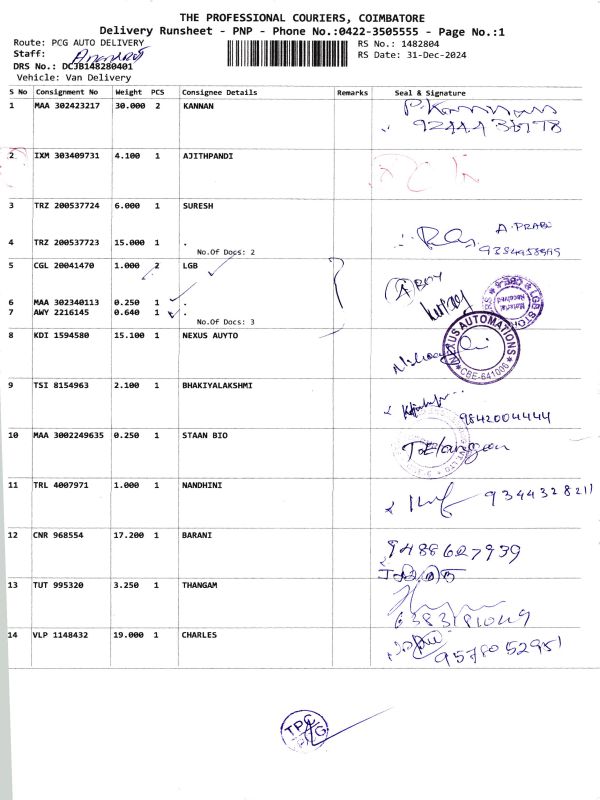 THE PROFESSIONAL COURIERS, COIMBATORE
Delivery Runsheet - PNP - Phone No.:0422-3505555 - Page No.:1
Route: PCG AUTO DELIVERY
RS No.: 1482804
Staff:
RS Date: 31-Dec-2024
DRS No.: DCJB148280401
Vehicle: Van Delivery
S No Consignment No Weight PCS Consignee Details Remarks Seal & Signature
1 MAA 302423217 30.000 2 KANNAN
2 IXM 303409731 4.100 1 AJITHPANDI
3 TRZ 200537724 6.000 1 SURESH
A. PRABU
4 TRZ 200537723 15.000 1 .
No.Of Docs: 2
5 CGL 20041470 1.000 2 LGB
6 MAA 302340113 0.250 1 .
7 AWY 2216145 0.640 1 .
No.Of Docs: 3
8 KDI 1594580 15.100 1 NEXUS AUYTO
NEXUS AUTOMATIONS
CBE-641006
9 TSI 8154963 2.100 1 BHAKIYALAKSHMI
9842004444
10 MAA 3002249635 0.250 1 STAAN BIO
11 TRL 4007971 1.000 1 NANDHINI
9344328211
12 CNR 968554 17.200 1 BARANI
9488627939
13 TUT 995320 3.250 1 THANGAM
6383181049
14 VLP 1148432 19.000 1 CHARLES
9578052951